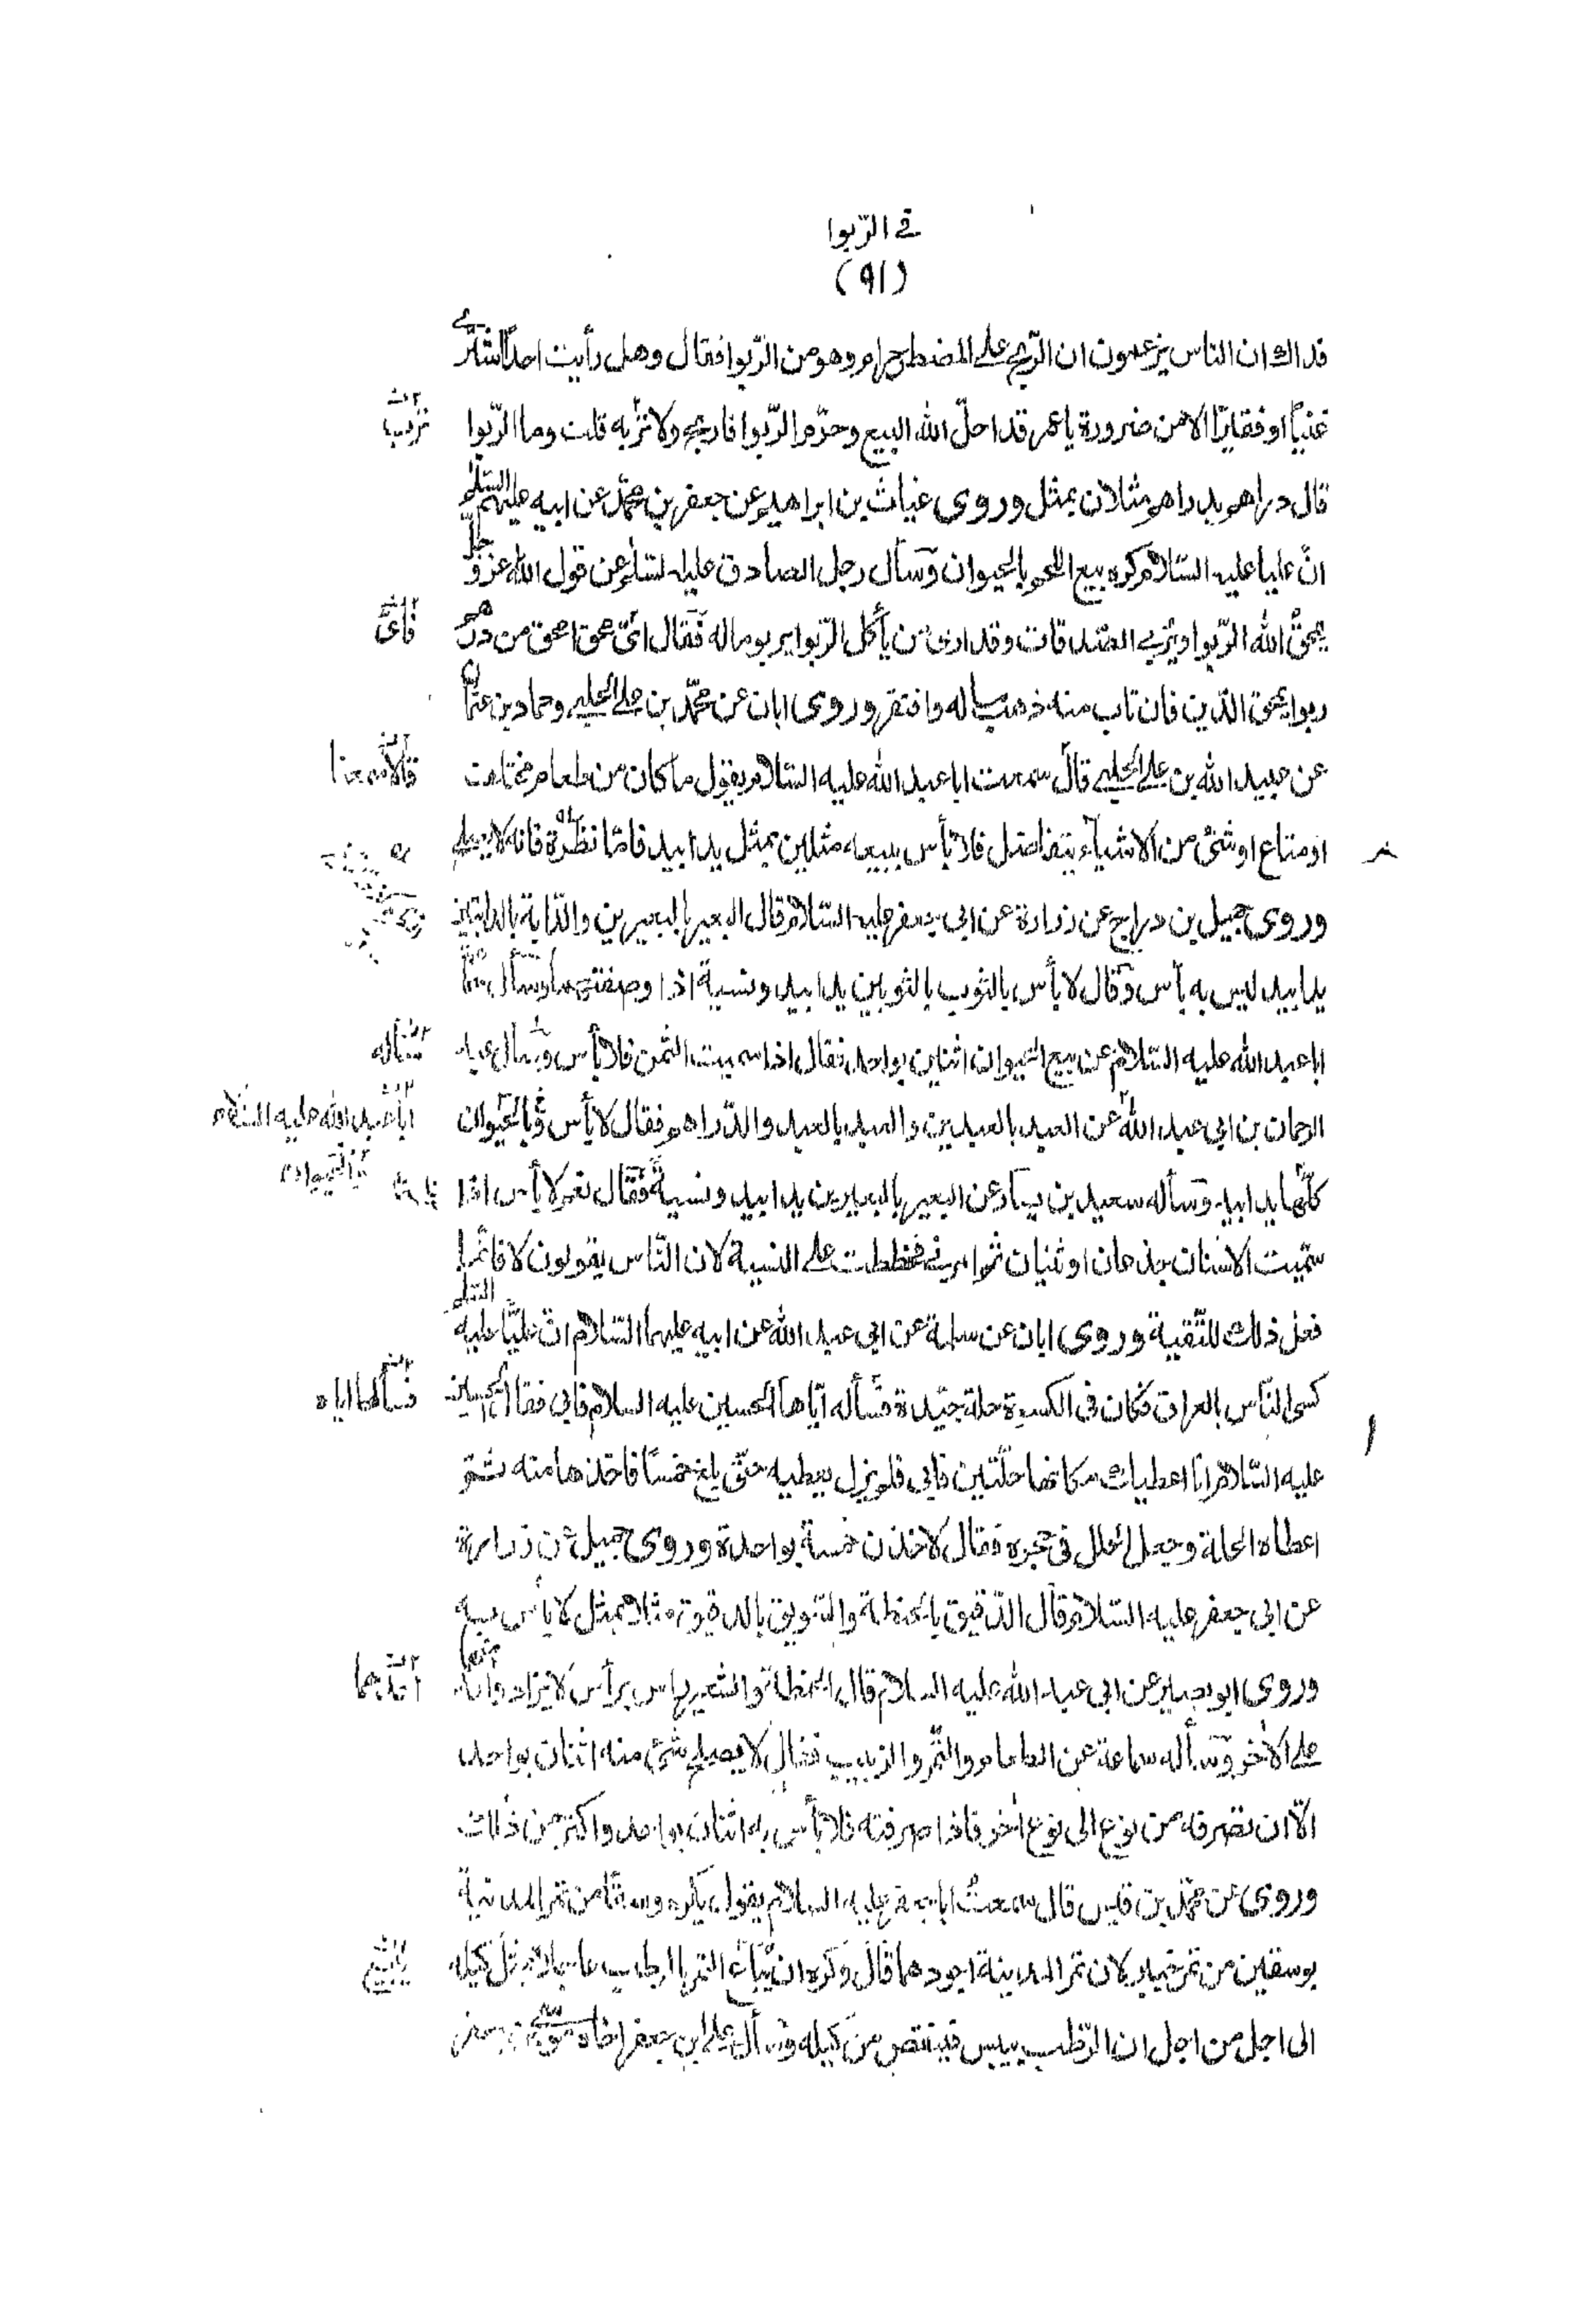 في الرّبوا
(٩١)
فداك ان الناس يزعمون ان الرّبح على المضطر حرام وهو من الرّبوا فقال وهل رأيت احدًا اشترى
غنيًا او فقيرًا الا من ضرورة يا عمر قد احلّ الله البيع وحرّم الرّبوا فاربح ولا تربه قلت وما الرّبوا
قال دراهم بدراهم مثلان بمثل وروى غياث بن ابراهيم عن جعفر بن محمّد عن ابيه عليهم السّلم
انّ عليا عليه السّلام كره بيع اللحم بالحيوان وسأل رجل الصادق عليه السّلم عن قول الله عزّ وجلّ
يمحق الله الرّبوا ويربي الصّدقات وقد ارى من يأكل الرّبوا يربو ماله فقال اىّ محق امحق من درهم
ربوا يمحق الدّين فان تاب منه ذهب ماله وافتقر وروى ابان عن محمّد بن على الحلبي وحماد بن عثمان
عن عبيد الله بن على الحلبي قال سمعت ابا عبد الله عليه السّلام يقول ما كان من طعام مختلف
او متاع او شئ من الاشيآء يتفاضل فلا بأس ببيعه مثلين بمثل يدا بيد فامّا نظرة فانه لا يصلح
وروى جميل بن دراج عن زرارة عن ابي جعفر عليه السّلام قال البعير بالبعيرين والدّابة بالدابتين
يدا بيد ليس به بأس وقال لا بأس بالثوب بالثوبين يدا بيد ونسية اذا وصفتهما وسأل
ابا عبد الله عليه السّلام عن بيع الحيوان اثنين بواحد فقال اذا سميت الثمن فلا بأس وسأل عبد
الرحمان بن ابي عبد الله عن العبد بالعبدين والعبد بالعبد والدّراهم فقال لا بأس بالحيوان
كلّها يدا بيد وسأله سعيد بن يسار عن البعير بالبعيرين يدا بيد ونسية فقال نعم لا بأس اذا
سمّيت الاسنان جذعان او ثنيان ثم امرني فخططت على النسية لان النّاس يقولون لا فانّما
فعل ذلك للتّقية وروى ابان عن سلمة عن ابي عبد الله عن ابيه عليهما السّلام انّ عليًّا عليه السّلم
كسى النّاس بالعراق فكان في الكسوة حلة جيّدة فسأله ايّاها الحسين عليه السلام فابى فقال الحسين
عليه السّلام انا اعطيك مكانها حلّتين فابى فلم يزل يعطيه حتّى بلغ خمسًا فاخذها منه ثم
اعطاه الحلة وجعل الحلل في حجره فقال لاخذن خمسة بواحدة وروى جميل عن زرارة
عن ابي جعفر عليه السّلام قال الدّقيق بالحنطة والسّويق بالدقيق مثلا بمثل لا بأس به
وروى ابو بصير عن ابي عبد الله عليه السلام قال الحنطة والشعير رأس برأس لا يزاد واحد منهما
على الاخر وسأله سماعة عن الطعام والتّمر والزبيب فقال لا يصلح شئ منه اثنان بواحد
الّا ان تصرفه من نوع الى نوع اخر فاذا صرفته فلا بأس به اثنان بواحد واكثر من ذلك
وروى عن محمّد بن قيس قال سمعت ابا جعفر عليه السلام يقول يكره وسقًا من تمر المدينة
بوسقين من تمر خيبر لان تمر المدينة اجودهما قال وكره ان يباع التمر بالرطب عاجلا بمثل كيله
الى اجل من اجل ان الرّطب ييبس فينقص من كيله وسأل على ابن جعفر اخاه موسى بن جعفر
تربب
فاىّ
قالا سمعنا
يسأله
ابا عبد الله عليه السّلام
فسألها اياه
احدهما